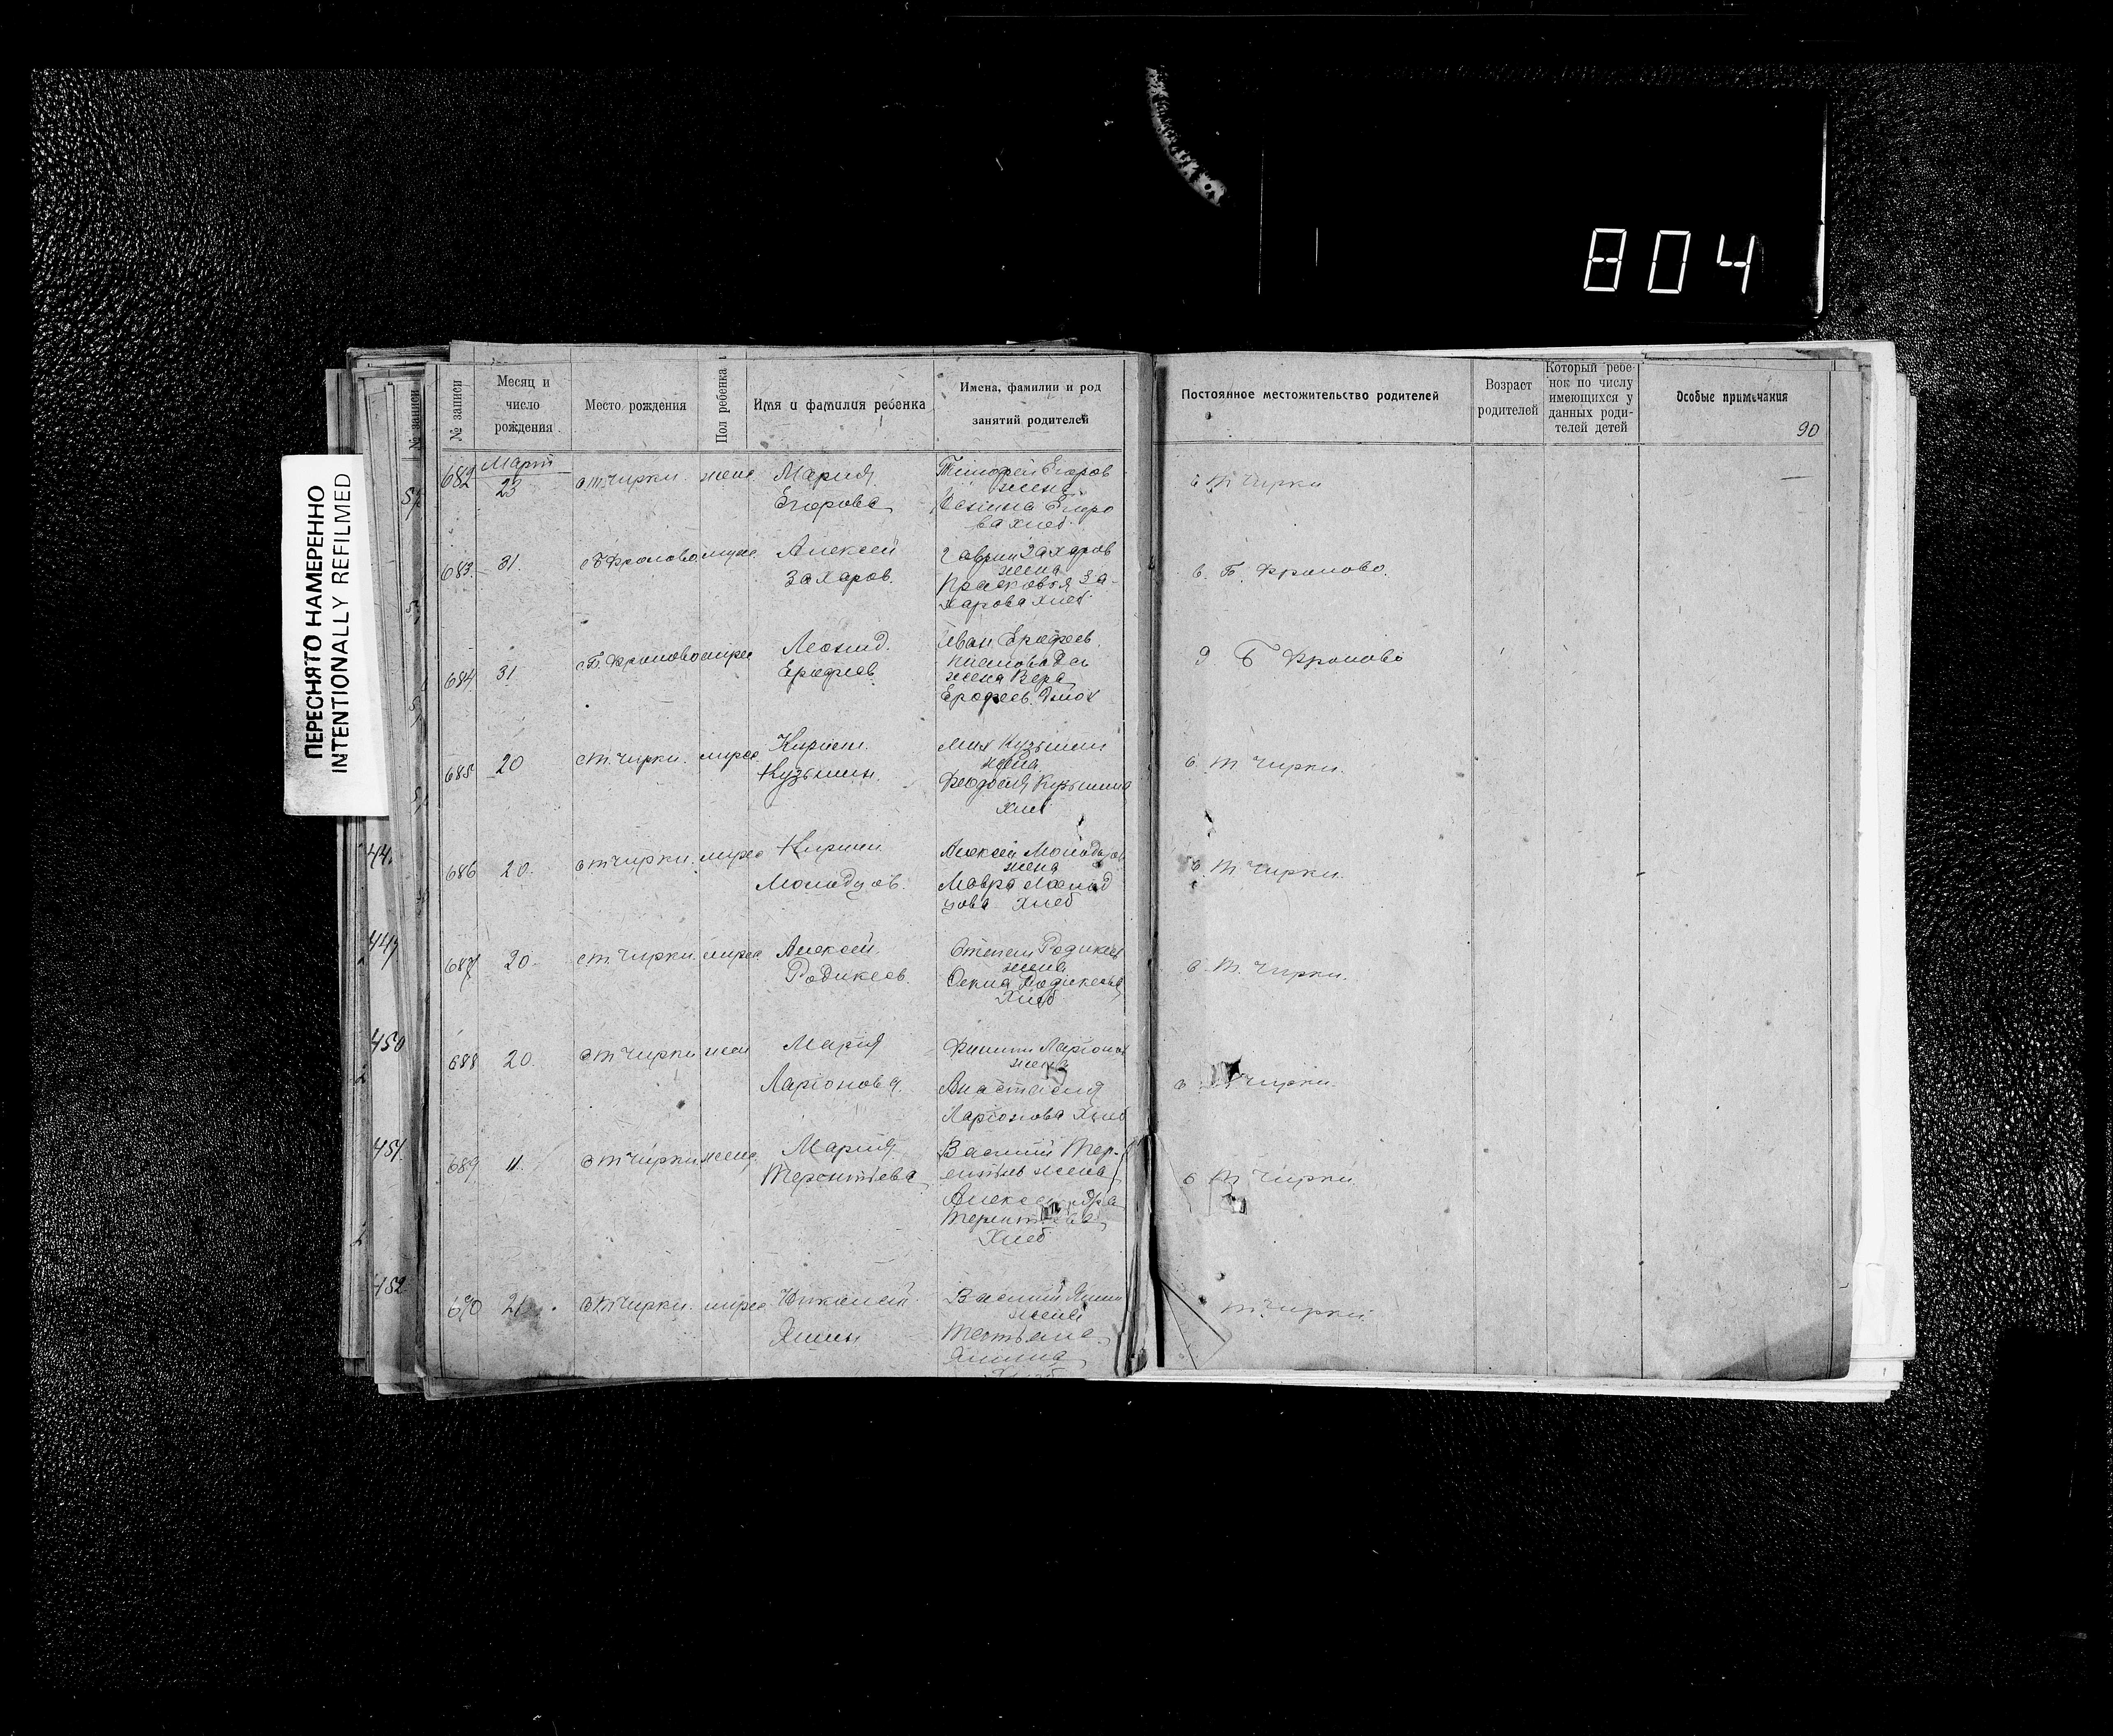 804
ПЕРЕСНЯТО НАМЕРЕННО
INTENTIONALLY REFILMED
№ записи
№ записи
Месяц и
число
рождения
Место рождения
Пол ребенка
Имя и фамилия ребенка
Имена, фамилии и род
занятий родителей
Постоянное местожительство родителей
Возраст
родителей
Который ребе-
нок по числу
имеющихся у
данных роди-
телей детей
Особые примечания
90
682
Март
23
с т. Чирки
жен
Мария
Егорова
Тимофей Егоров
жена
Егоро
ва хлеб
с т Чирки
683
31.
с Б Фролово
муж.
Алексей
Захаров.
Захаров
жена
Прасковья За-
харова хлеб
с. Б. Фролово.
684
31
с Б. Фролово
муж
Леонид.
Ерофеев
Иван Ерофеев.
жена Вера
Ерофеев
Б Фролово
685
20
с т. Чирки.
муж
Кирилл.
Кузьмин.
Мих Кузьмин
жена
Феодосия Кузьмина
хлеб
с. т Чирки.
686
20.
с т Чирки.
муж
Кирилл
Молодцов.
Алексей Молодцов
жена
Мавра Молод
цова хлеб
с т Чирки.
687
20.
с т. Чирки.
муж.
Алексей.
Родикеев.
Степан Родикеев
жена
Родикеева
Хлеб
с. т. Чирки.
688
20.
с т Чирки
жен
Мария
Ларионова.
Филипп Ларионов
жена
Анастасия
Ларионова Хлеб
с т Чирки.
689
11.
с т Чирки
жен.
Мария
Терентьева
Василий Тер-
ентьев жена
Александра
Терентьева
Хлеб
с т Чирки
690
21
с т Чирки.
муж.
Николай
Яшин
Василий Яшин
жена
Татьяна
Яшина
т. Чирки
447
450
451.
452